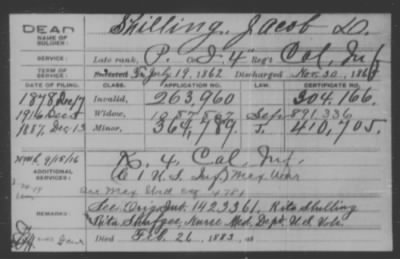 DEAD
NAME OF SOLDIER:
Shilling, Jacob D.
SERVICE:
Late rank, P. Co. I, 4" Reg't Cal. Inf
TERM OF SERVICE:
Enlisted July 19, 1862 Discharged Nov. 30, 186
DATE OF FILING. CLASS. APPLICATION NO. LAW. CERTIFICATE NO.
1878 Dec 17 Invalid, 263,960 204,166.
1916 Widow, Sep 891,336
1887. Dec 13 Minor, 364,789 410,705.
9/15/16 K. 4 Cal. Inf.
ADDITIONAL SERVICES:
C 1 U.S. Inf Mex War
See Mex
REMARKS:
See Orig Int. 1423361. Rita Shilling
Rita Nurse Med. Dept. U.S. Vols.
Died Feb. 26, 1883, at